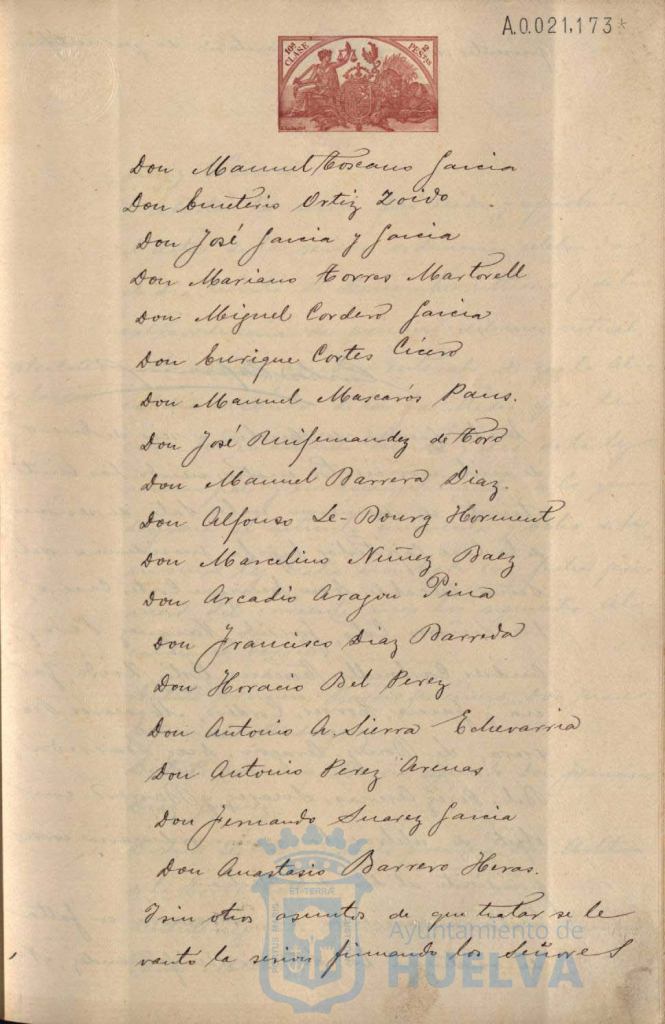 A.0.021,173*
10ª CLASE 2 PESETAS
Don Manuel Toscano Garcia
Don Emeterio Ortiz Zoido
Don José Garcia y Garcia
Don Mariano Torres Martorell
Don Miguel Cordero Garcia
Don Enrique Cortes Cícero
Don Manuel Mascarós Pans.
Don José Ruifernandez de Toro
Don Manuel Barrera Diaz.
Don Alfonso Le-Bourg Horment
Don Marcelino Nuñez Baez
Don Arcadio Aragon Pina
Don Francisco Diaz Barreda
Don Horacio Bel Perez
Don Antonio A. Sierra Echevarria
Don Antonio Perez Arenas
Don Fernando Suarez Garcia
Don Anastasio Barrero Heras.
I sin otros asuntos de que tratar se le
vantó la sesion firmando los Señores
Ayuntamiento de
HUELVA